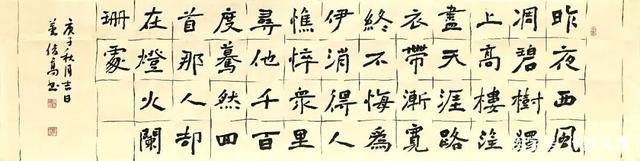 昨夜西風
凋碧樹獨
上高樓望
盡天涯路
衣帶漸寬
終不悔為
伊消得人
憔悴衆里
尋他千百
度驀然回
首那人却
在燈火闌
珊處
庚子秋月吉日